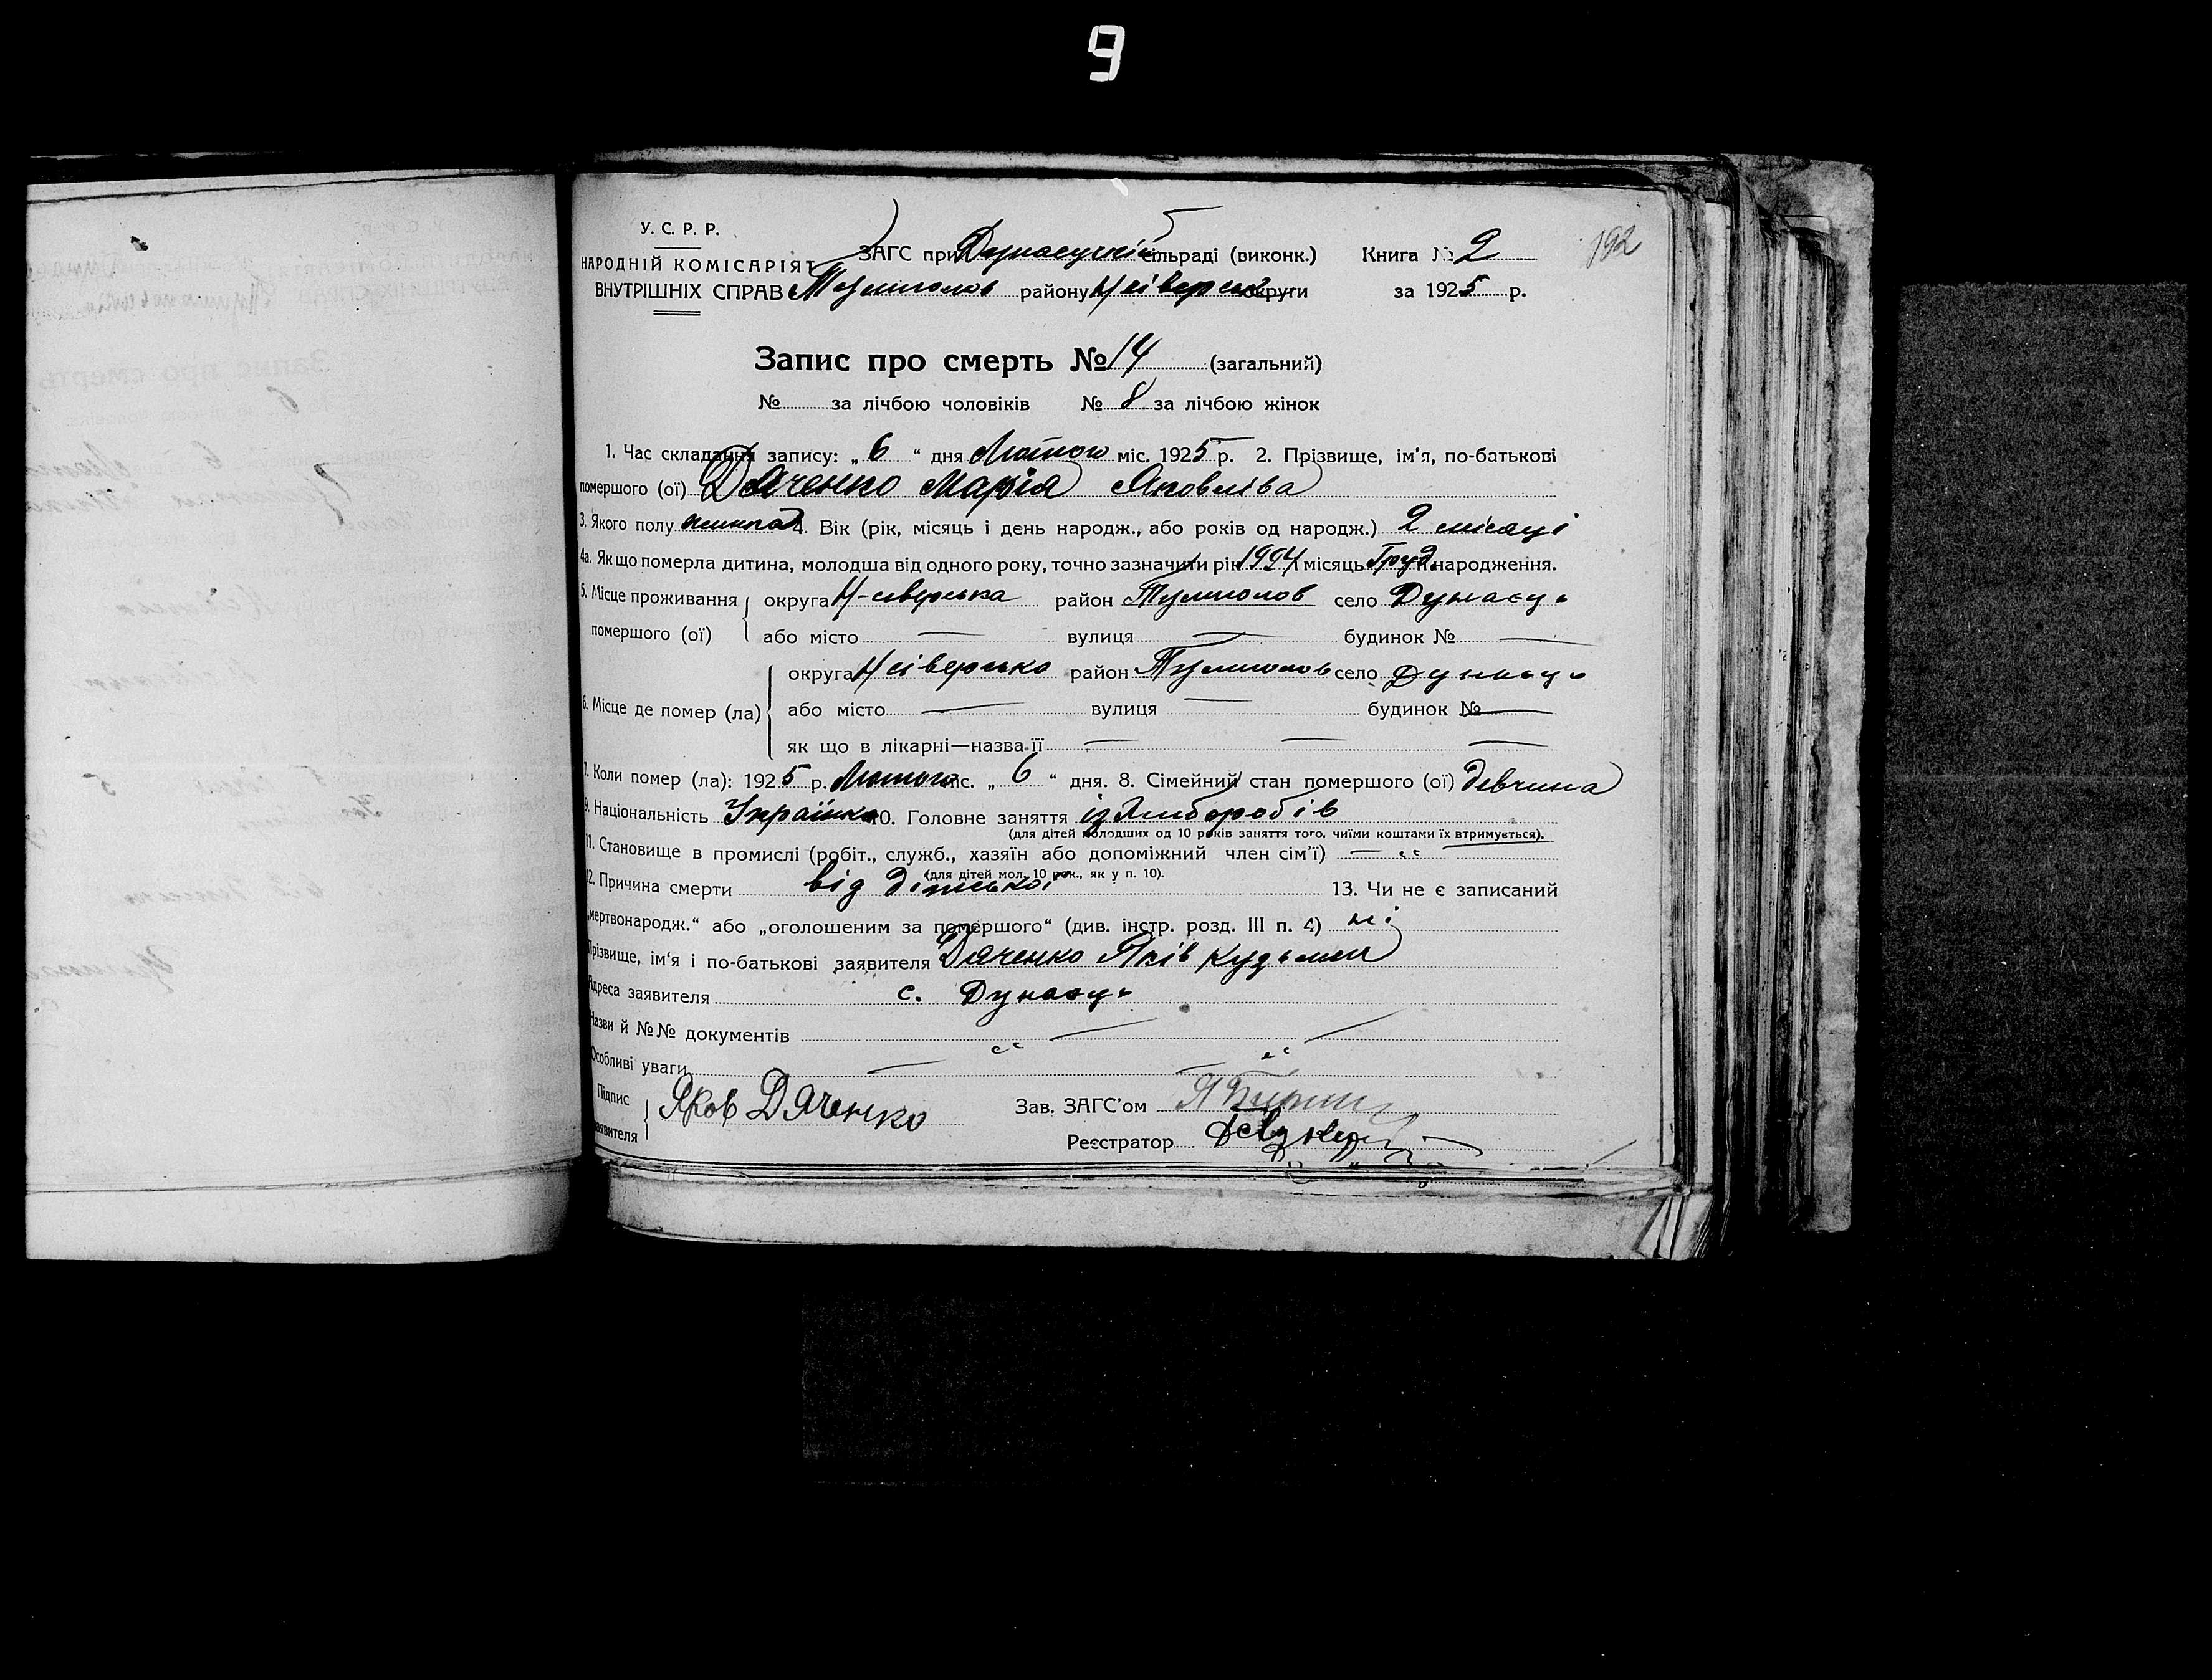 9
192
У. С. Р. Р.
НАРОДНІЙ КОМІСАРІЯТ
ВНУТРІШНІХ СПРАВ
ЗАГС при Дунаецкій сільраді (виконк.) Книга № 2
Тулиголов району Н сіверськ округи за 1925 р.
Запис про смерть № 14 (загальний)
№ за лічбою чоловіків № 8 за лічбою жінок
1. Час складання запису: „ 6 “ дня Лютого міс. 1925 р. 2. Прізвище, ім'я, по-батькові
помершого (ої) Дяченко Марія Яковліва
3. Якого полу жинка 4. Вік (рік, місяць і день народж., або років од народж.) 2 місяці
4а. Як що померла дитина, молодша від одного року, точно зазначити рік 1924 місяць Груд. народження.
5. Місце проживання округа Н-сіверська район Тулиголов село Дунаєць
помершого (ої) або місто — вулиця — будинок № —
округа Н сіверсько район Тулиголов село Дунаєць
6. Місце де помер (ла) або місто — вулиця — будинок № —
як що в лікарні—назва її — — —
7. Коли помер (ла): 1925 р. Лютого міс. „ 6 “ дня. 8. Сімейний стан помершого (ої) девчина
9. Національність Українка 10. Головне заняття із Хлиборобів
(для дітей молодших од 10 років заняття того, чиїми коштами їх втримується).
11. Становище в промислі (робіт., служб., хазяїн або допоміжний член сім'ї) — „
(для дітей мол. 10 рок., як у п. 10).
12. Причина смерти від дитської 13. Чи не є записаний
„мертвонародж.“ або „оголошеним за помершого“ (див. інстр. розд. III п. 4) ні
Прізвище, ім'я і по-батькові заявителя Дяченко Яків Кузьмич
Адреса заявителя с. Дунаєць
Назви й №№ документів — „ —
Особливі уваги — „ —
Підпис заявителя Яков Дяченко Зав. ЗАГС'ом
Реєстратор